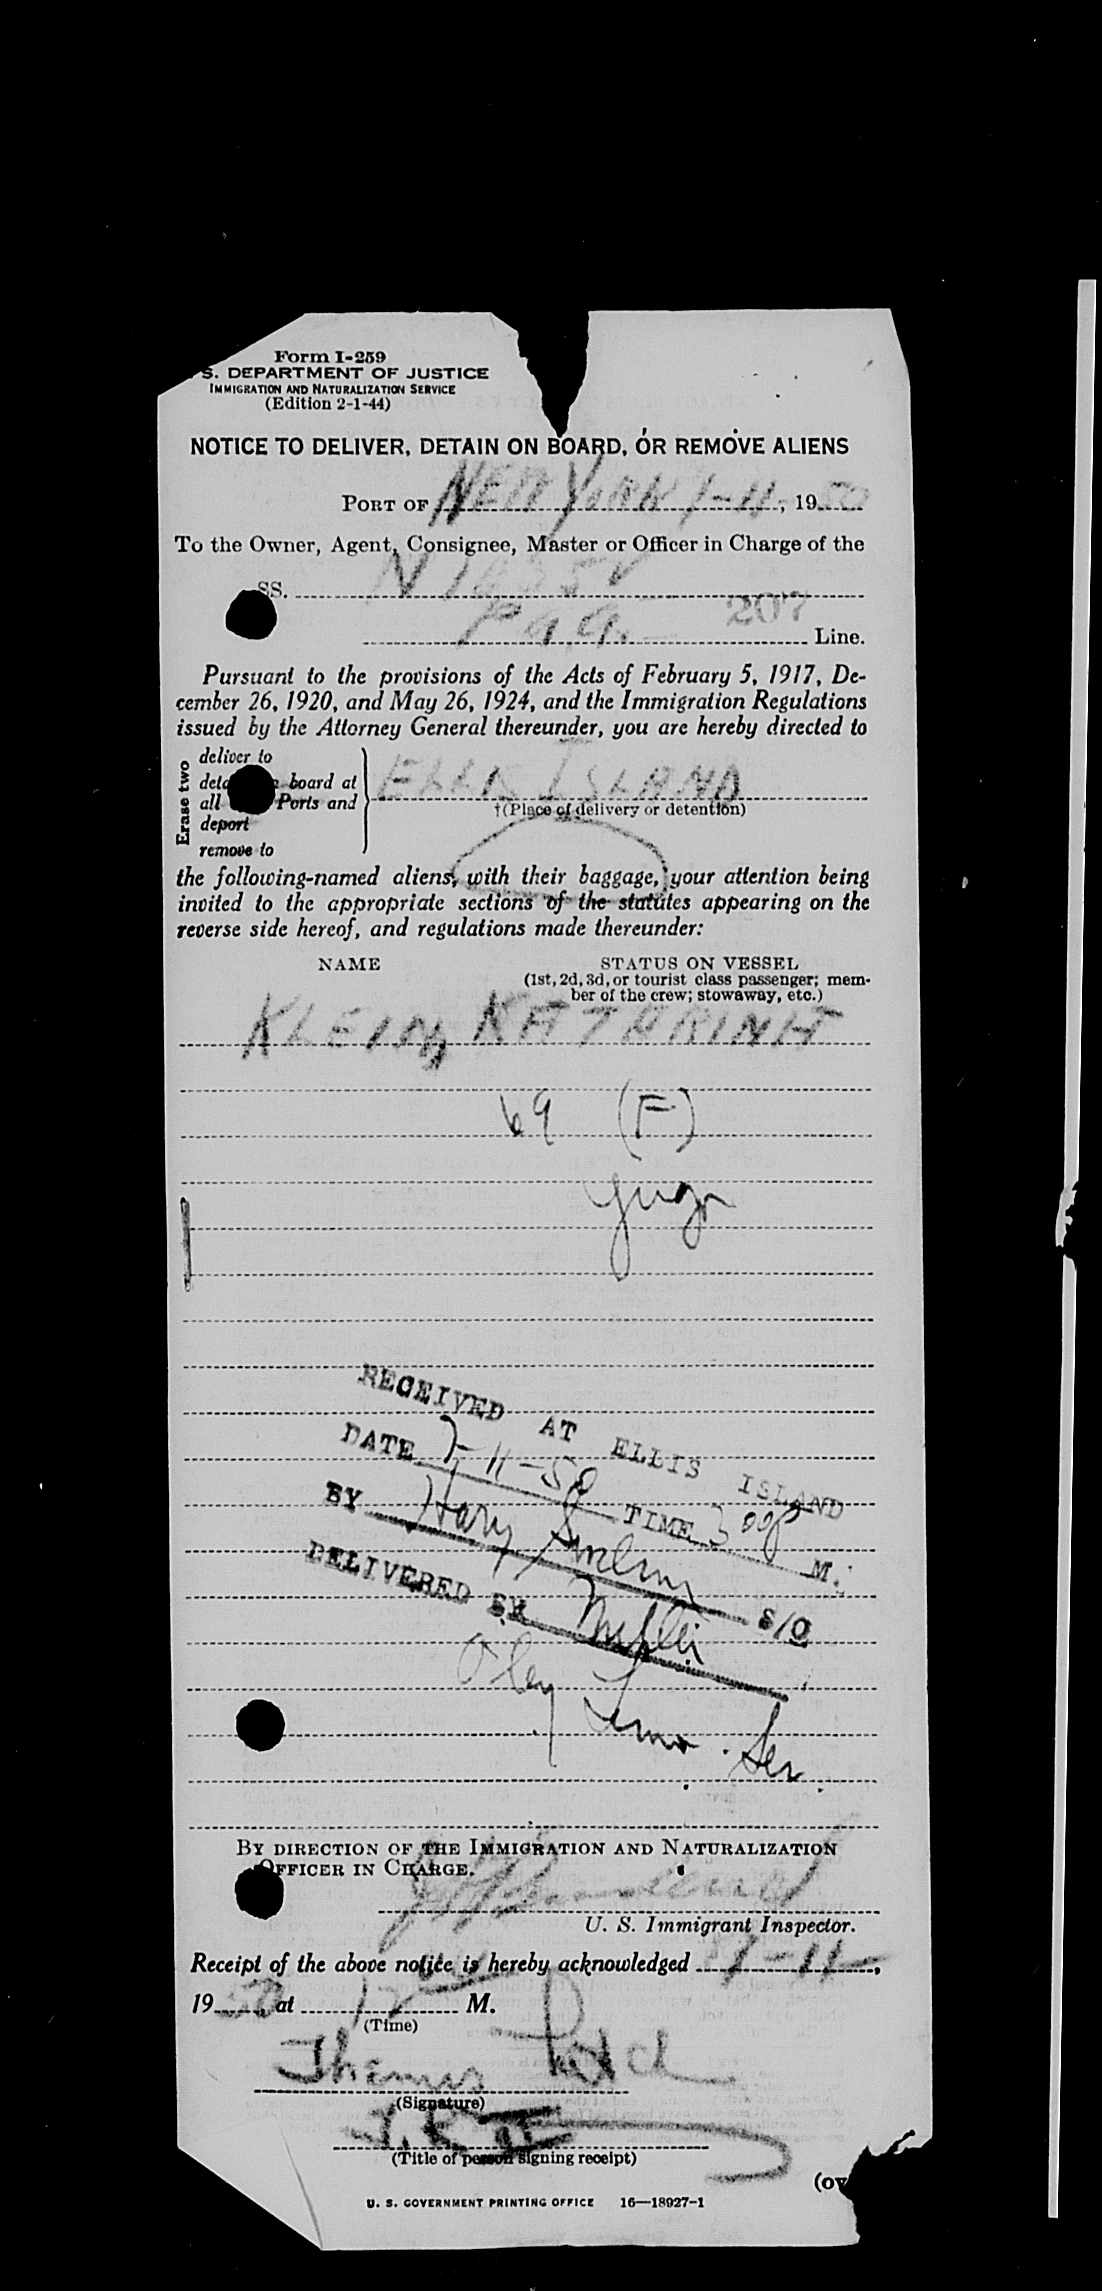 Form I-259
S. DEPARTMENT OF JUSTICE
IMMIGRATION AND NATURALIZATION SERVICE
(Edition 2-1-44)
NOTICE TO DELIVER, DETAIN ON BOARD, OR REMOVE ALIENS
PORT OF NEW YORK 7-11-, 1950
To the Owner, Agent, Consignee, Master or Officer in Charge of the
SS. N
P a a. 207 Line.
Pursuant to the provisions of the Acts of February 5, 1917, De-
cember 26, 1920, and May 26, 1924, and the Immigration Regulations
issued by the Attorney General thereunder, you are hereby directed to
Erase two
deliver to
board at
all Ports and
deport
remove to
ELLIS ISLAND
†(Place of delivery or detention)
the following-named aliens, with their baggage, your attention being
invited to the appropriate sections of the statutes appearing on the
reverse side hereof, and regulations made thereunder:
NAME STATUS ON VESSEL
(1st, 2d, 3d, or tourist class passenger; mem-
ber of the crew; stowaway, etc.)
KLEIN, KATHARINA
69 (F)
Yugo
RECEIVED AT ELLIS ISLAND
DATE 7-11-50 TIME 3 00 P M.
BY Harry S/O
DELIVERED BY
Ser.
BY DIRECTION OF THE IMMIGRATION AND NATURALIZATION
OFFICER IN CHARGE.
U. S. Immigrant Inspector.
Receipt of the above notice is hereby acknowledged 7-11-,
1950 at 12 M.
(Time)
Thomas
(Signature)
(Title of person signing receipt)
(ov
U. S. GOVERNMENT PRINTING OFFICE 16—18927-1